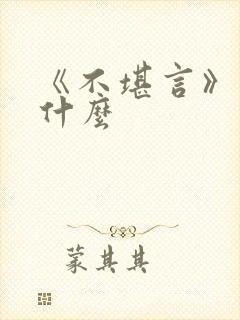 《不堪言》
什麼
蒙其其